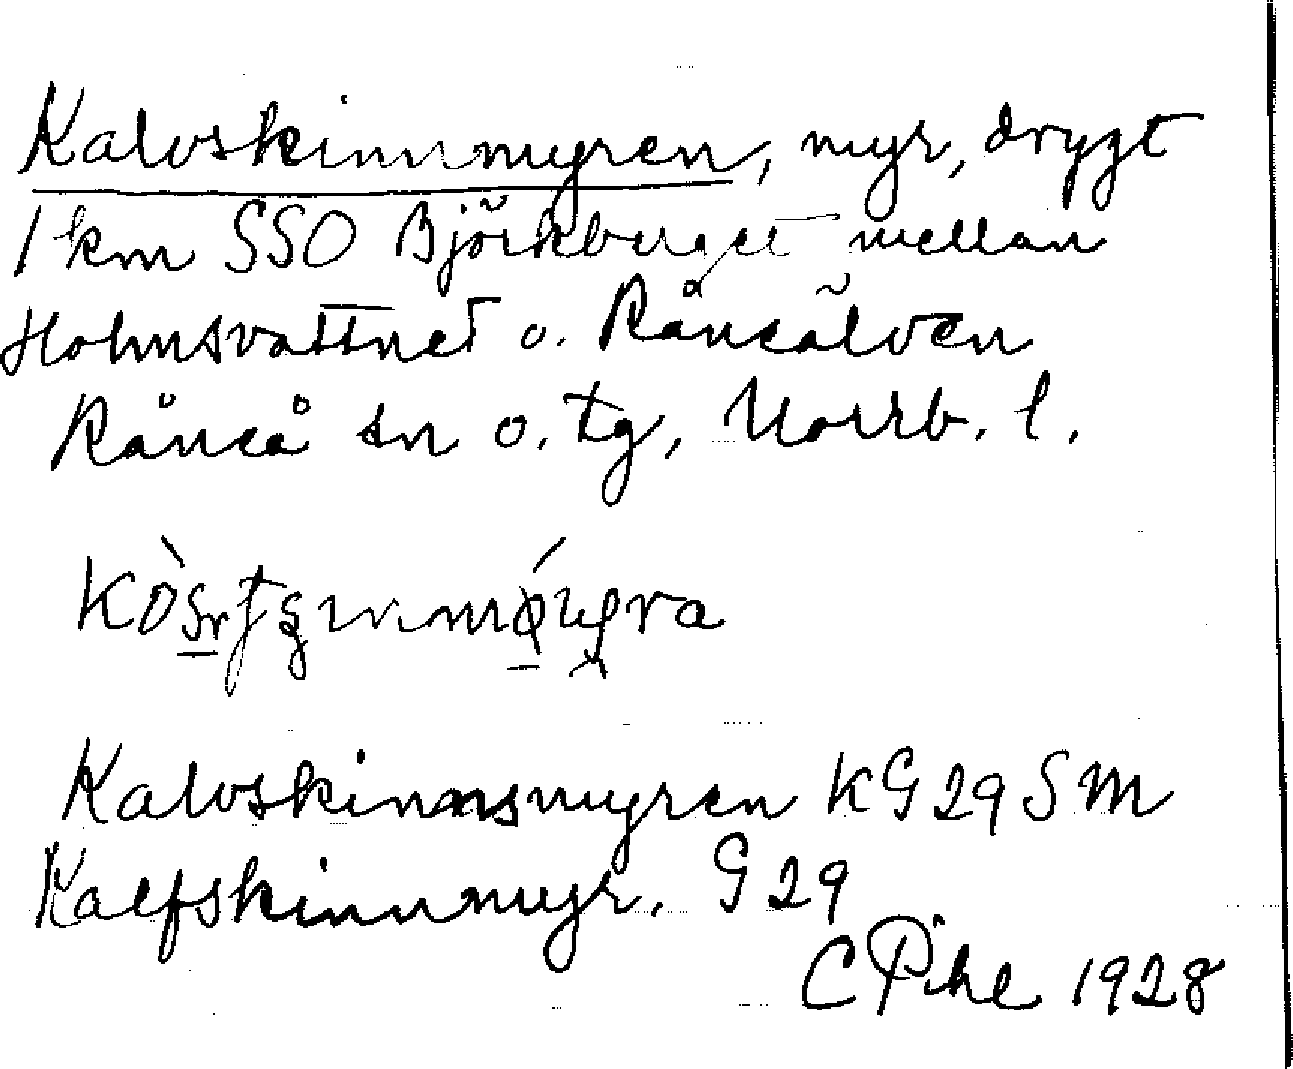 Kalvskinnmyren, myr, drygt
1 km SSO Björkberget mellan
Holmsvattnet o. Råneälven
Råneå sn o. tg, Norrb. l.
Kalvskinnsmyren KG 29 SM
Kalfskinnmyr. G 29
C Pihl 1928